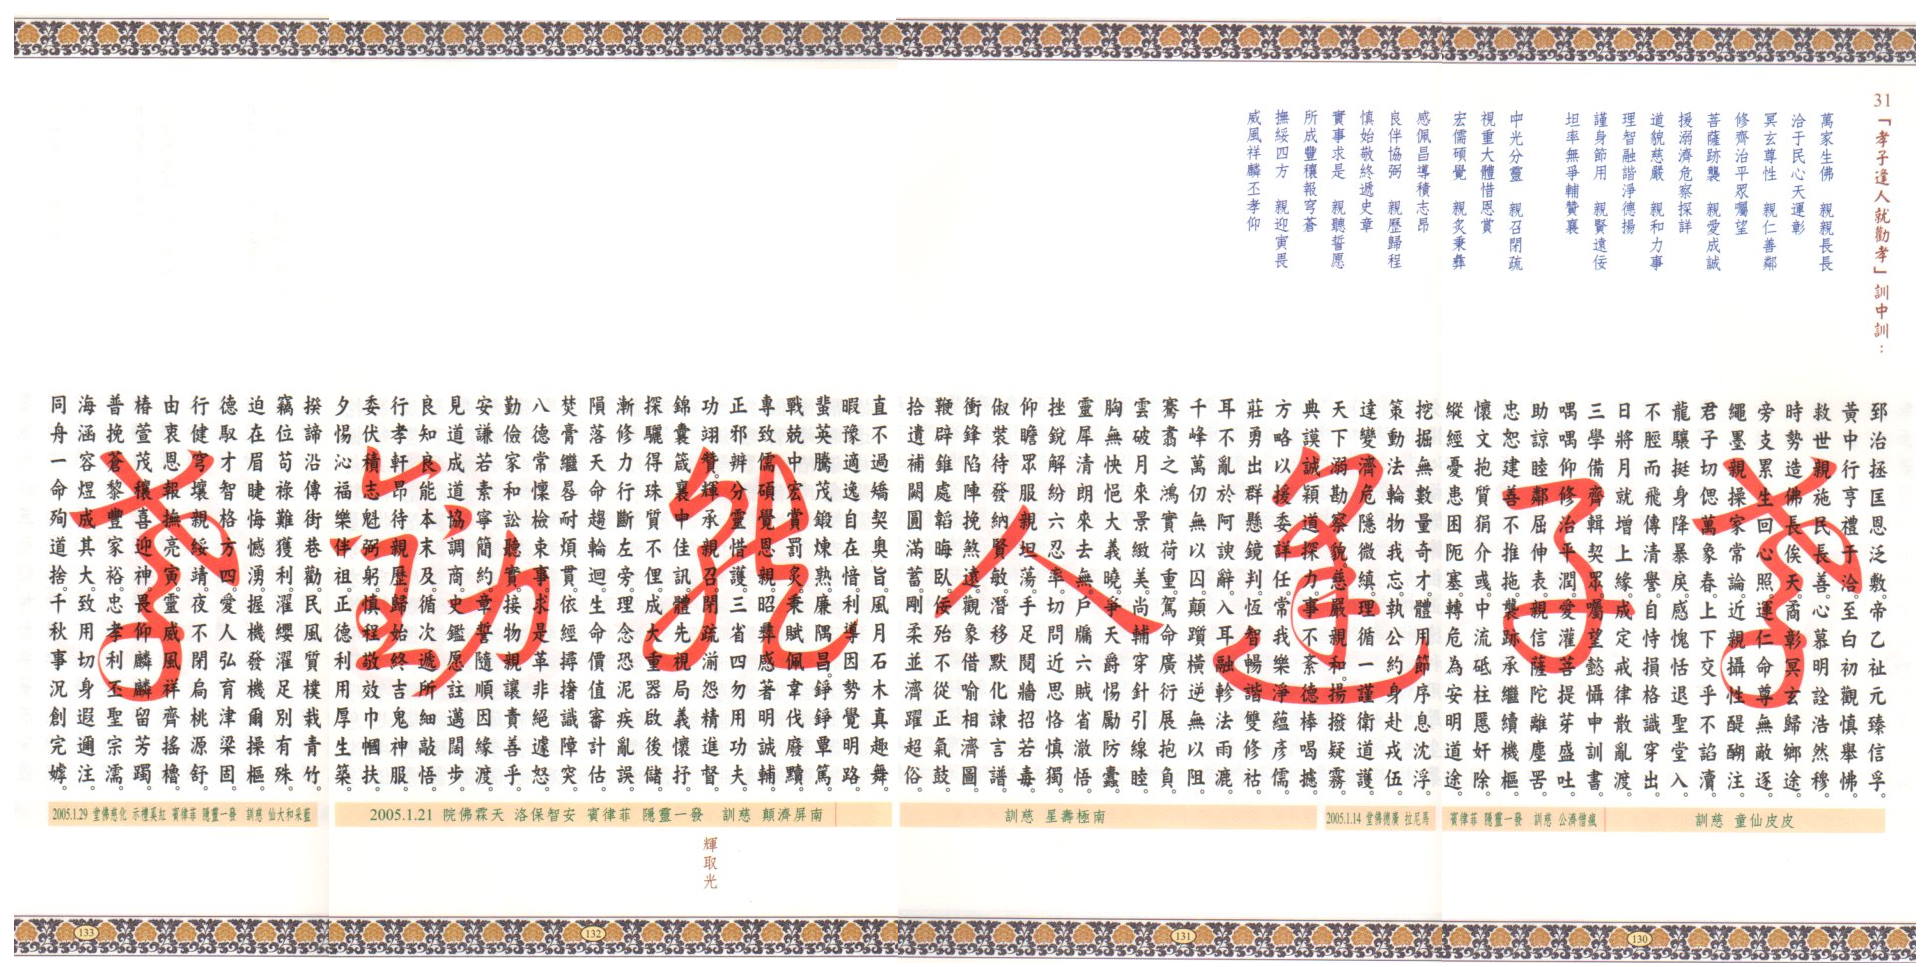 31「孝子逢人就勸孝」訓中訓：
萬家生佛　親親長長
洽于民心天運彰
冥玄尊性　親仁善鄰
修齊治平眾囑望
菩薩跡襲　親愛成誠
援溺濟危察探詳
道貌慈嚴　親和力事
理智融諧淨德揚
謹身節用　親賢遠佞
坦率無爭輔贊襄
中光分靈　親召閉疏
視重大體惜恩賞
宏儒碩覺　親炙秉彝
感佩昌導積志昂
良伴協弼　親歷歸程
慎始敬終遞史章
實事求是　親聽誓愿
所成豐穰報穹蒼
撫綏四方　親迎寅畏
威風祥麟丕孝仰
郅治拯匡恩泛敷。帝乙祉元臻信孚。
黃中行亨禮于洽。至白初觀慎舉佛。
救世親施民長善。心慕明詮浩然穆。
時勢造佛長俟天。裔彰冥玄歸鄉途。
旁支累生回心照。運仁命尊無敵逐。
繩墨親操家常論。近親攝性醒醐注。
君子切偲萬象春。上下交乎不諂瀆。
龍驤挺身降暴戾。感愧恬退聖堂入。
不脛而飛傳清譽。自恃損格識穿出。
日將月就增上緣。成定戒律散亂渡。
三學備齊輯契眾。囑望懿懾申訓書。
喁喁仰修治平潤。愛灌菩提芽盛吐。
助諒睦鄰屈伸表。親信薩陀離塵罟。
忠恕建善不推拖。襲跡承繼續機樞。
懷文抱質狷介彧。中流砥柱慝奸除。
縱經憂患困阨塞。轉危為安明道途。
挖掘無數量奇才。體用節序息沈浮。
策動法輪物我忘。執公約身赴戎伍。
達變濟危隱微縝。理循一謹衛道護。
天下溺勘察貌慈。嚴親和揚撥疑霧。
典謨誠穎道探力。事不紊德棒喝據。
方略以援委詳任。常我樂淨蘊彥儒。
莊勇出群懸鏡判。恆智暢諧雙修祜。
耳不亂於阿諛辭。入耳融軫法雨漉。
千峰萬仞無以囚。顛躓橫逆無以阻。
騫翥之鴻實荷重。駕命廣衍展抱負。
雲破月來景緻美。尚輔穿針引線睦。
胸無怏悒大義曉。爭天爵惕勵防蠹。
靈犀清朗來去無。戶牖六賊省澈悟。
挫銳解紛六忍率。切問近思恪慎獨。
仰瞻眾服親坦蕩。手足鬩牆招若毒。
俶裝待發納賢敏。潛移默化諫言譜。
衝鋒陷陣挽煞遠。觀象借喻相濟圖。
鞭辟錐處韜晦臥。佞殆不從正氣鼓。
拾遺補闕圓滿蓄。剛柔並濟躍超俗。
直不過矯契奧旨。風月石木真趣舞。
暇豫適逸自在愔。利導因勢覺明路。
蜚英騰茂鍛煉熟。廉隅昌錚錚覃篤。
戰兢中宏賞罰炙。秉賦佩韋伐廢黷。
專致儒碩覺恩親。昭彝感著明誠輔。
正邪辨分靈惜護。三省四勿用功夫。
功翊贊輝承親召。閉疏湔怨精進督。
錦囊箴襄中佳訊。體先視局義懷抒。
探驪得珠質不俚。成大重器啟後儲。
漸修力行斷左旁。理念恐泥疾亂誤。
隕落天命趨輪迴。生命價值審計估。
焚膏繼晷耐煩貫。依經撏撦識障突。
八德常懍檢束事。求是革非絕遽怒。
勤儉家和訟聽實。接物親讓責善乎。
安謙若素寧簡約。章誓隨順因緣渡。
見道成道協調商。史鑑愿註邁闊步。
良知良能本末及。循次遞所細敲悟。
行孝軒昂待親歷。歸始終吉鬼神服。
委伏積志魁弼躬。慎程敬效巾幗扶。
夕惕沁福樂伴祖。正德利用厚生築。
揆諦沿傳街巷勸。民風質樸栽青竹。
竊位苟祿難獲利。濯纓濯足別有殊。
迫在眉睫悔憾湧。握機發機爾操樞。
德馭才智格方四。愛人弘育津梁固。
行健穹壤親綏靖。夜不閉扃桃源舒。
由衷恩報撫亮寅。靈威風祥齊搖櫓。
椿萱茂穰喜迎神。畏仰麟麟留芳躅。
普挽蒼黎豐家裕。忠孝利丕聖宗濡。
海涵容煜成其大。致用切身遐邇注。
同舟一命殉道捨。千秋事況創完嫭。
孝子逢人就勸孝
皮皮仙童 慈訓
瘋僧濟公 慈訓 發一靈隱 菲律賓
馬尼拉 廣德佛堂 2005.1.14
南極壽星 慈訓
南屏濟顛 慈訓 發一靈隱 菲律賓 安智保洛 天霖佛院 2005.1.21
輝取光
藍采和大仙 慈訓 發一靈隱 菲律賓 紅奚禮示 化慈佛堂 2005.1.29
130
131
132
133